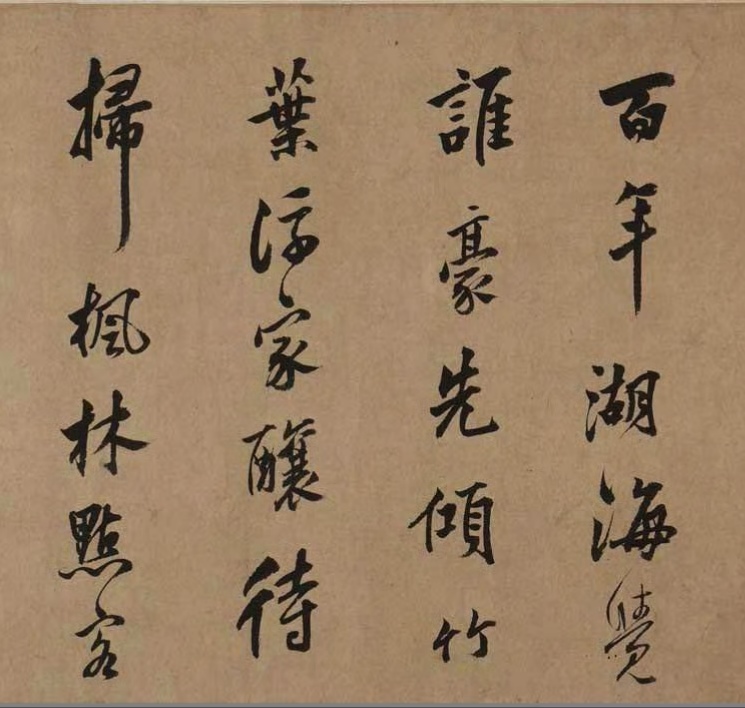 百年湖海覺
誰豪先傾竹
葉浮家釀待
掃楓林點客